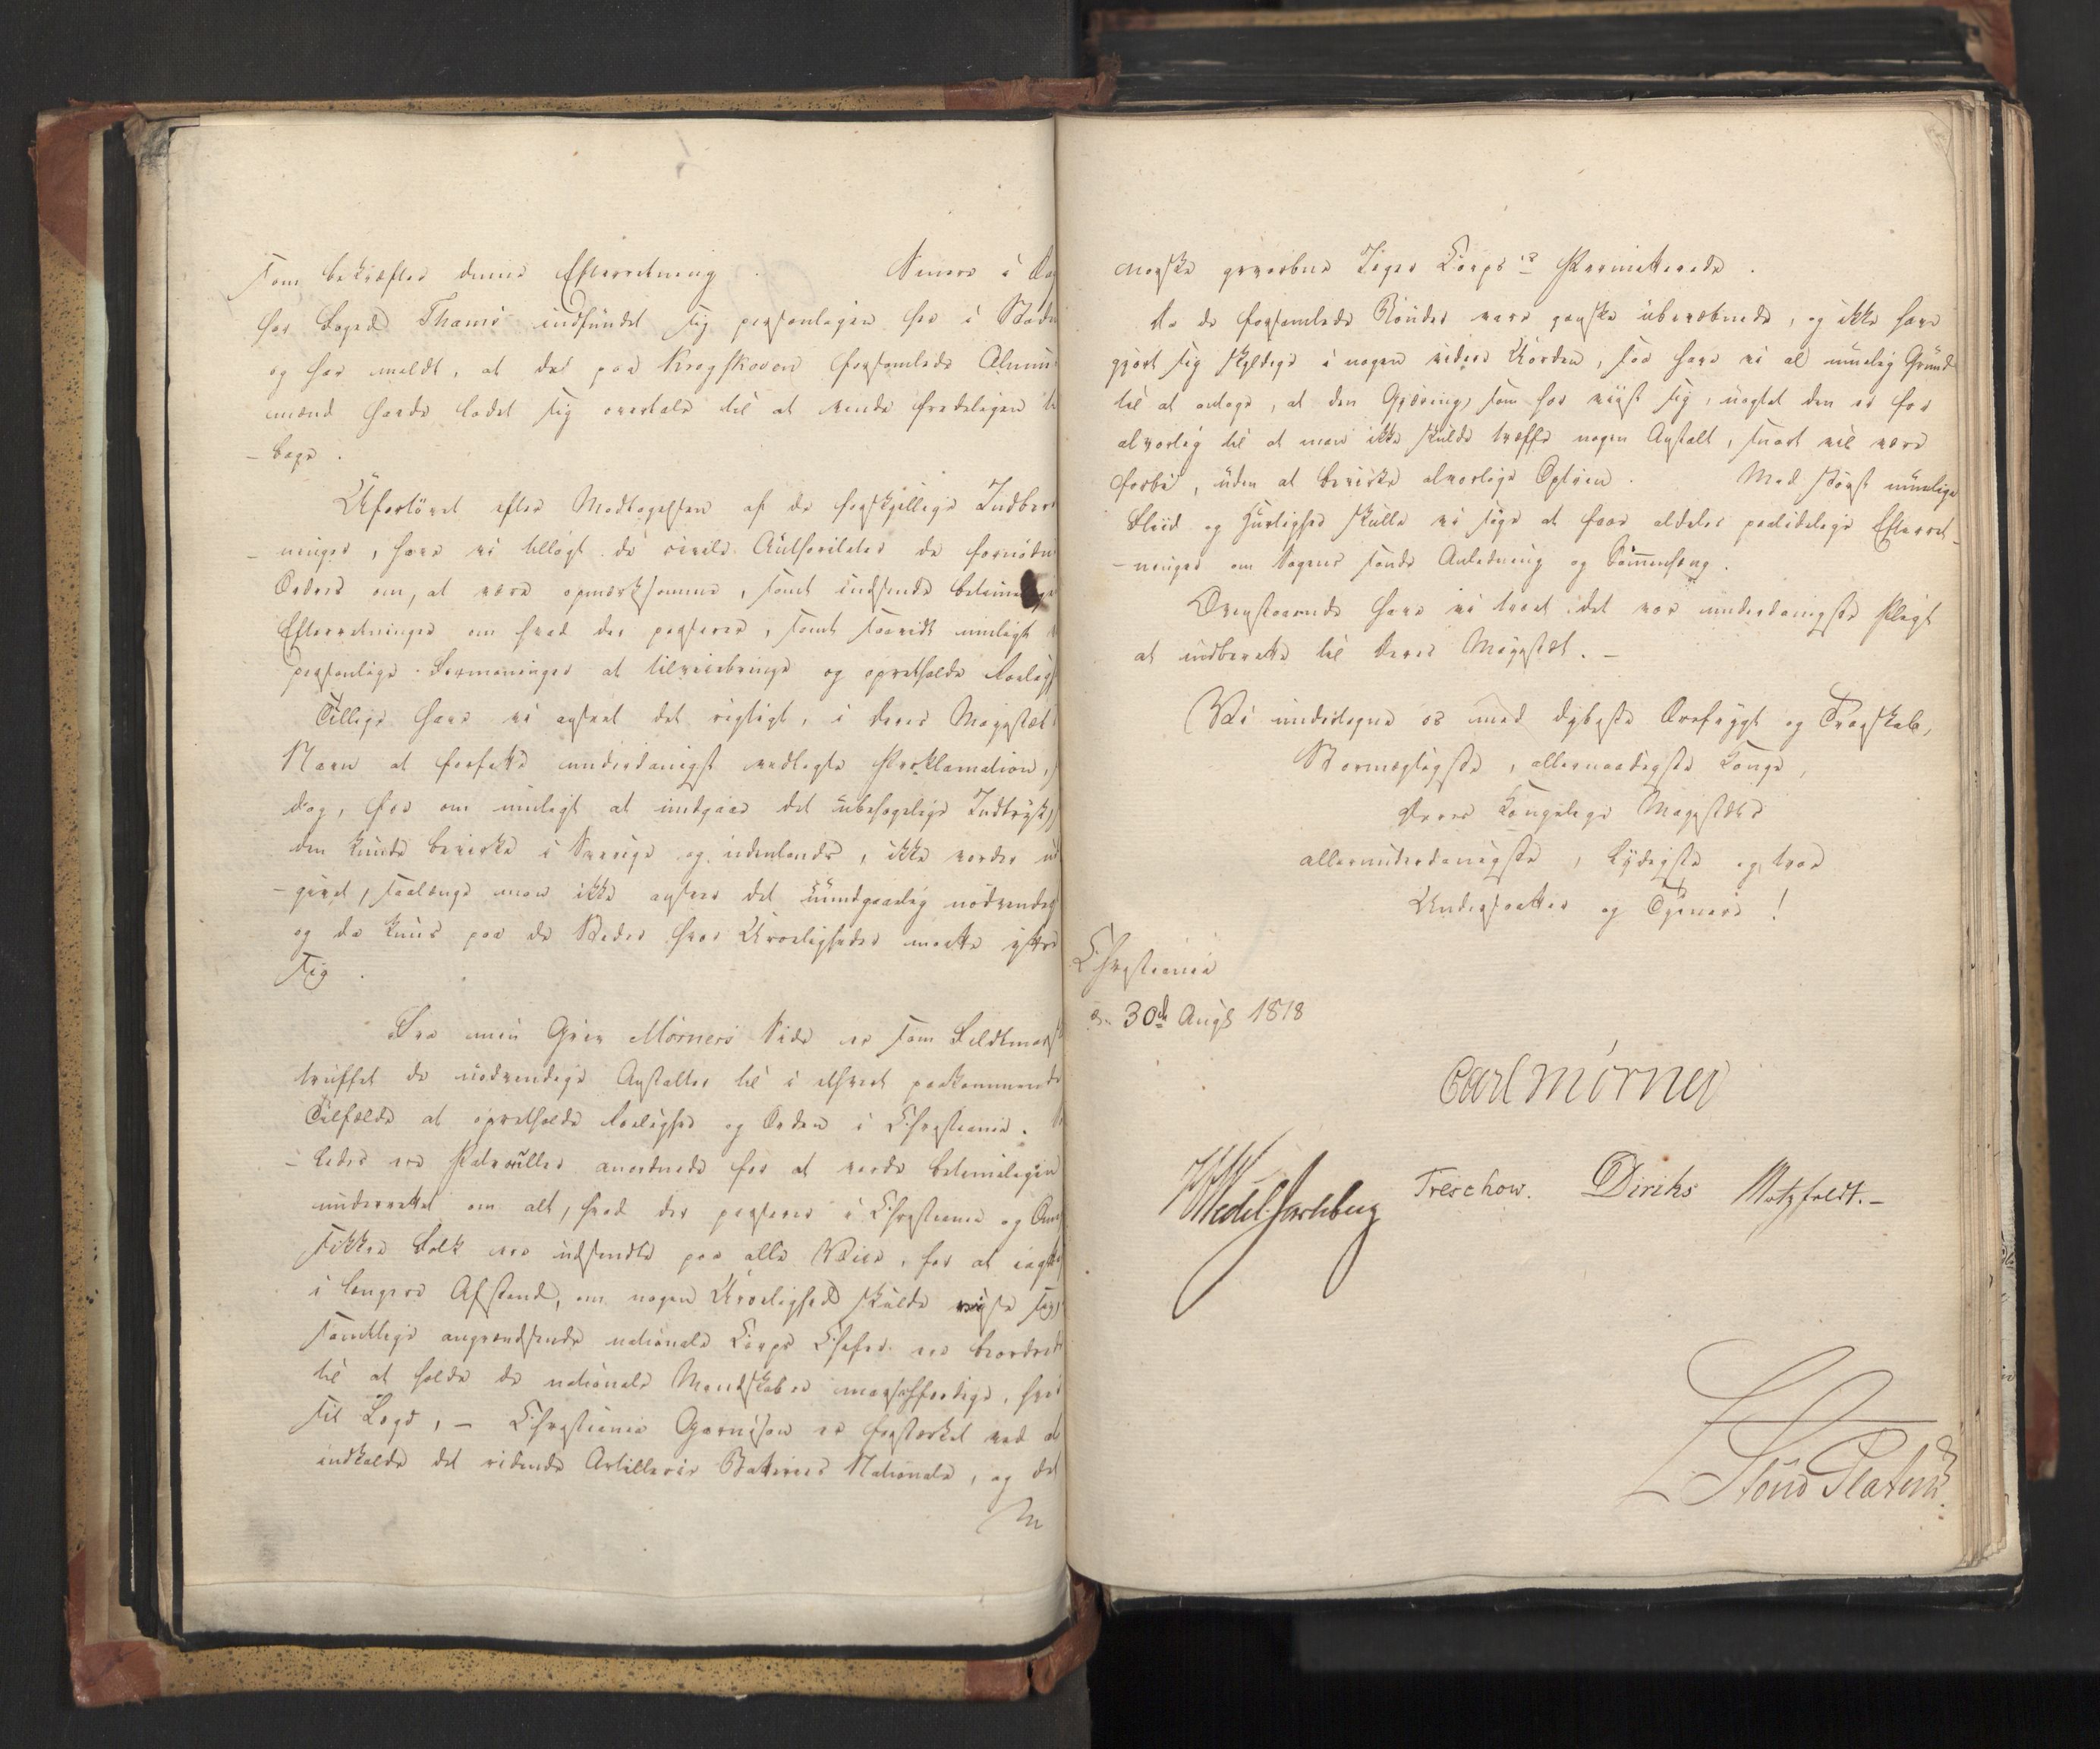 som bekræfter denne Efterretning. Senere i Dag
har Foged Thams indfundet sig personligen her i Staden
og har meldt, at det paa Krogskoven forsamlede Almue
mænd havde ladet sig overtale til at vende fredeligen til
- bage.
Ufortövet efter Modtagelsen af de forskjellige Indberet
- ninger, have vi tillagt de civile Authoriteter de fornödne
Ordres om, at være opmærksomme, samt indsende betimelige
Efterretninger om hvad der passerer, samt saavidt mueligt ved
personlige Formaninger at tilveiebringe og opretholde Rolighed
Tillige have vi anseet det rigtigt, i Deres Majestæts
Navn at forfatte underdanigst vedlagte Proklamation, som
dog, for om mueligt at undgaae det ubehagelige Indtryk,
den kunde bevirke i Sverige og udenlands, ikke vorder ud
- givet, saalænge man ikke anseer det uundgaaelig nödvendigt
og da kuns paa de Steder hvor Uroeligheder maatte yttre
sig.
Fra min Grev Mörners Side er som Feldtmarskal
truffet de nödvendige Anstalter til i ethvert paakommende
Tilfælde at opretholde Rolighed og Orden i Christiania. Saa
- ledes ere Patrouiller anordnede for at vorde betimeligen
underrettet om alt, hvad der passerer i Christiania og Omegn
sikkre Folk ere udsendte paa alle Veie, for at iagttage
i længere Afstand, om nogen Uroelighed skulde viise sig,
samtlige angrændsende nationale Corps Chefer ere beordrede
til at holde de nationale Mandskaber marschfærdige, hver
sit Lægd, - Christiania Garnison er forstærket ved at
indkalde det ridende Artillerie Batteries Nationale, og det
No
norske gevorbne Jæger Corps's Permitterede.
Da de forsamlede Bönder vare ganske ubevæbnede, og ikke have
gjort sig skyldige i nogen videre Uorden, saa have vi al muelig Grund
til at antage, at den Gjæring, som har viist sig, uagtet den er for
alvorlig til at man ikke skulde træffe nogen Anstalt, snart vil være
forbi, uden at bevirke alvorlige Optrin. Med störst muelige
Fliid og Hurtighed skulle vi söge at faae aldeles paalidelige Efterret-
- ninger om Sagens sande Anledning og Sam̄enhæng.
Ovenstaaende have vi troet det vor underdanigste Pligt
at indberette til Deres Majestæt. -
Vi undertegne os med dybeste Ærefrygt og Troskab,
Stormægtigste, allernaadigste Konge,
Deres Kongelige Majestæts
allerunderdanigste, lydigste og troe
Undersaatter og Tjenere!
Christiania
den 30te Augt 1818
Carl Mörner
HWedel Jarlsberg Treschow. Diriks Motzfeldt. -